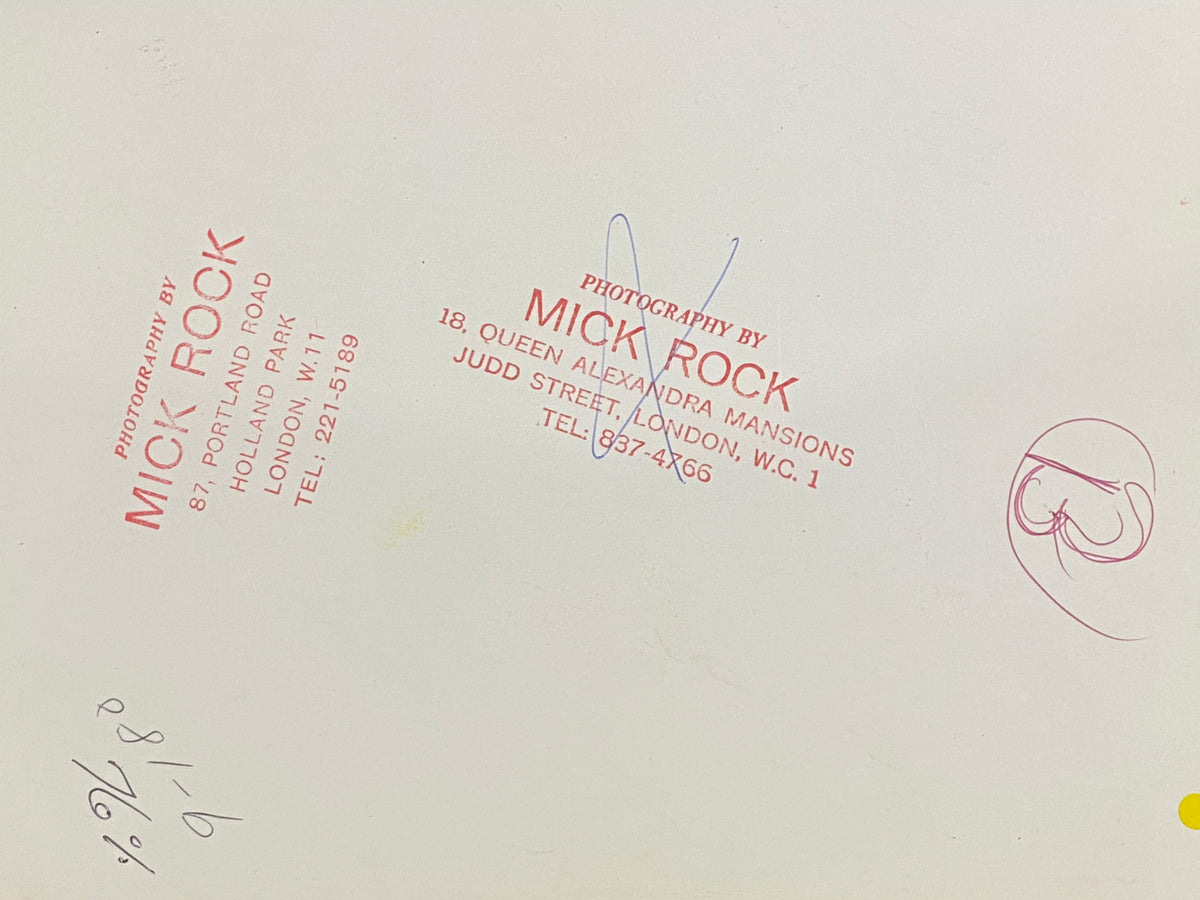 PHOTOGRAPHY BY
MICK ROCK
87, PORTLAND ROAD
HOLLAND PARK
LONDON, W.11
TEL: 221-5189
PHOTOGRAPHY BY
MICK ROCK
18, QUEEN ALEXANDRA MANSIONS
JUDD STREET, LONDON, W.C. 1
TEL: 837-4766
B
76%